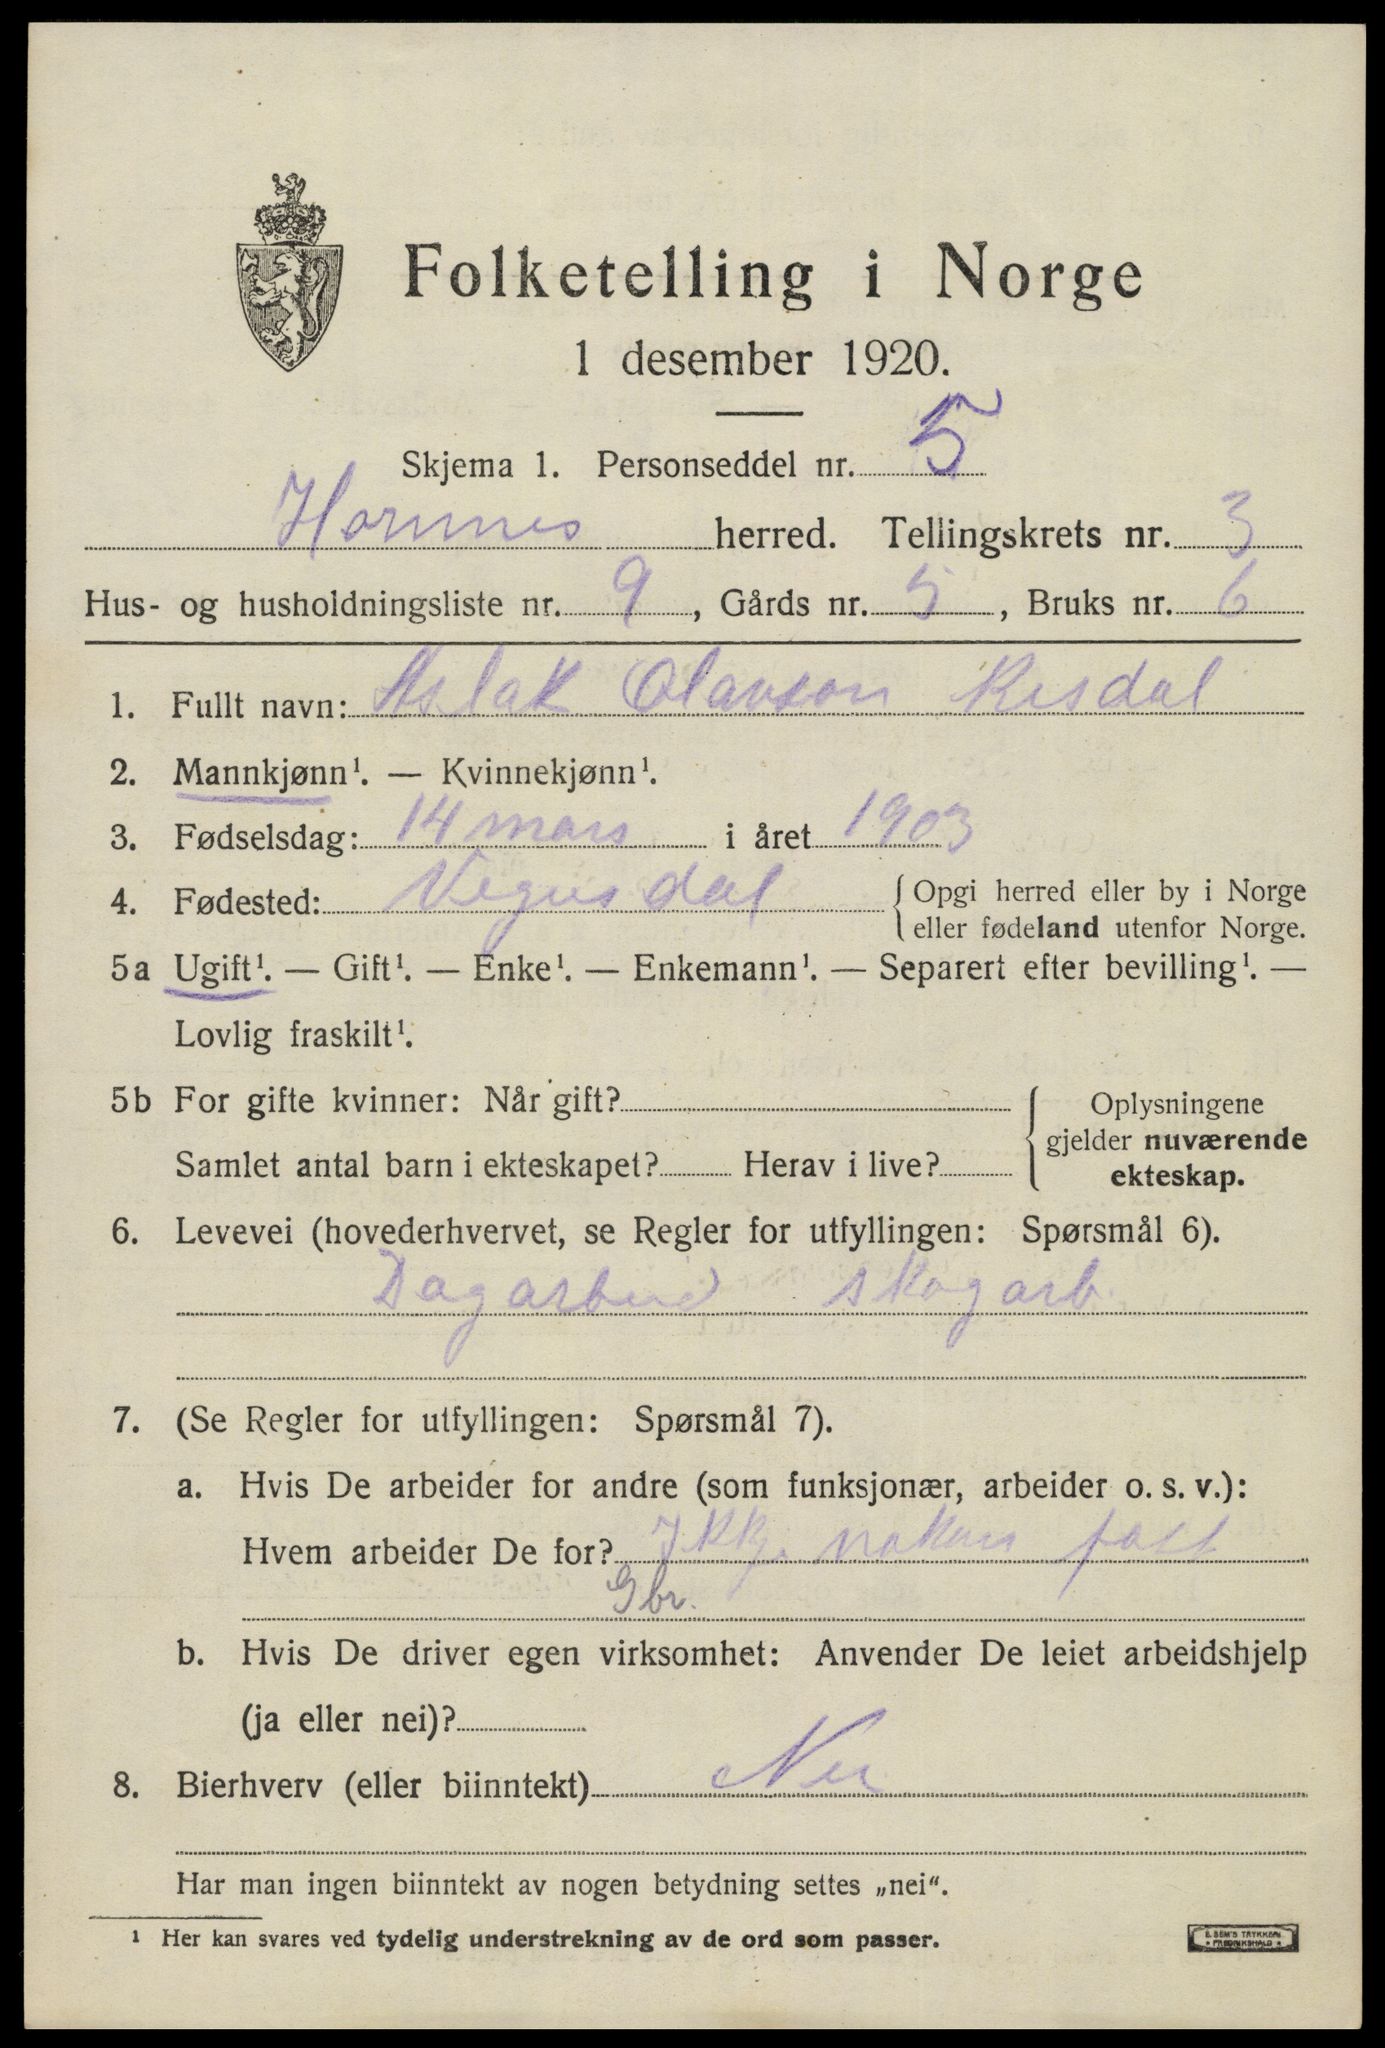 Folketelling i Norge
1 desember 1920.
Skjema 1. Personseddel nr. 5
Hornnes herred. Tellingskrets nr. 3
Hus- og husholdningsliste nr. 9, Gårds nr. 5, Bruks nr. 6
1. Fullt navn: Aslak Olavson Risdal
2. Mannkjønn¹. — Kvinnekjønn¹.
3. Fødselsdag: 14 mars i året 1903
4. Fødested: Vegusdal { Opgi herred eller by i Norge
eller fødeland utenfor Norge.
5a Ugift¹. — Gift¹. — Enke¹. — Enkemann¹. — Separert efter bevilling¹. —
Lovlig fraskilt¹.
5b For gifte kvinner: Når gift?
Samlet antal barn i ekteskapet? Herav i live?
{ Oplysningene
gjelder nuværende
ekteskap.
6. Levevei (hovederhvervet, se Regler for utfyllingen: Spørsmål 6).
Dagarbeid skogarb.
7. (Se Regler for utfyllingen: Spørsmål 7).
a. Hvis De arbeider for andre (som funksjonær, arbeider o. s. v.):
Hvem arbeider De for? Ikkj. nokon fast
Gbr.
b. Hvis De driver egen virksomhet: Anvender De leiet arbeidshjelp
(ja eller nei)?
8. Bierhverv (eller biinntekt) Nei
Har man ingen biinntekt av nogen betydning settes „nei“.
¹ Her kan svares ved tydelig understrekning av de ord som passer.
E. SEM'S TRYKKERI
* FREDRIKSHALD *